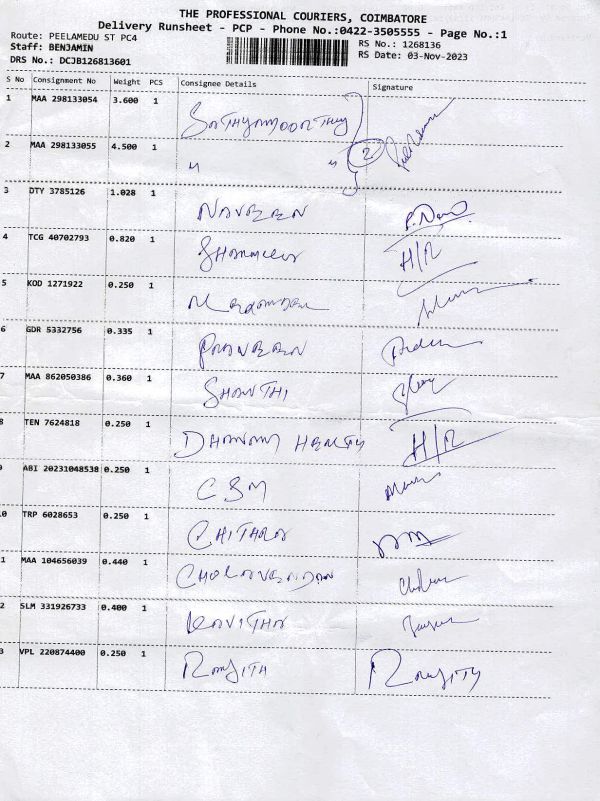 THE PROFESSIONAL COURIERS, COIMBATORE
Delivery Runsheet - PCP - Phone No.:0422-3505555 - Page No.:1
Route: PEELAMEDU ST PC4
Staff: BENJAMIN
DRS No.: DCJB126813601
RS No.: 1268136
RS Date: 03-Nov-2023
S No Consignment No Weight PCS Consignee Details Signature
1 MAA 298133054 3.600 1 SATHYAMOORTHY
2 MAA 298133055 4.500 1 " " 2
3 DTY 3785126 1.028 1 NAVEEN
4 TCG 40702793 0.820 1 H/R
5 KOD 1271922 0.250 1
6 GDR 5332756 0.335 1 PRAVEEN
7 MAA 862050386 0.360 1 SHANTHI
8 TEN 7624818 0.250 1 H/R
ABI 20231048538 0.250 1 CSM
0 TRP 6028653 0.250 1 CHITHRA
1 MAA 104656039 0.440 1
2 SLM 331926733 0.400 1 KAVITHA
3 VPL 220874400 0.250 1 RANJITH RANJITH